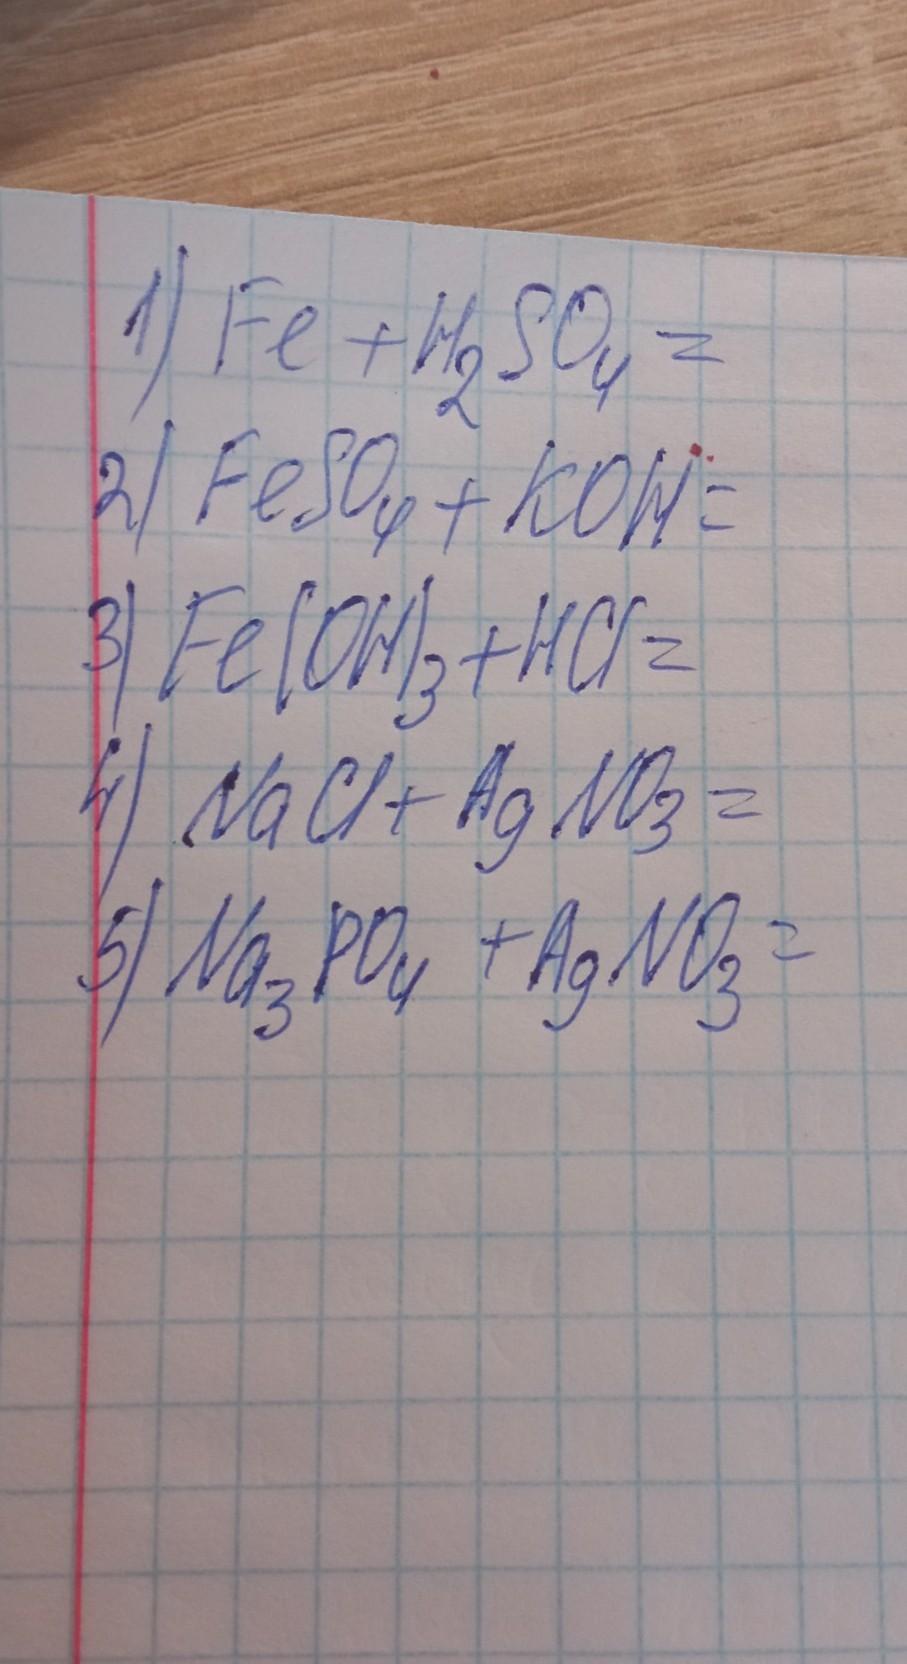 1) Fe + H₂SO₄ =
2) FeSO₄ + KOH =
3) Fe(OH)₃ + HCl =
4) NaCl + AgNO₃ =
5) Na₃PO₄ + AgNO₃ =